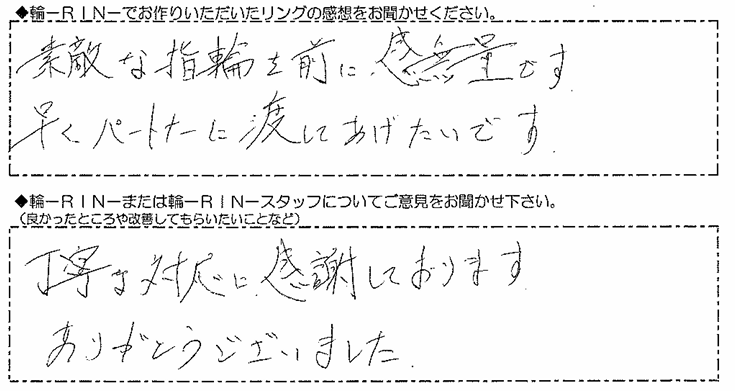 ◆輪－ＲＩＮ－でお作りいただいたリングの感想をお聞かせください。
素敵な指輪を前に、感無量です
早くパートナーに渡してあげたいです.
◆輪－ＲＩＮ－または輪－ＲＩＮ－スタッフについてご意見をお聞かせ下さい。
（良かったところや改善してもらいたいことなど）
丁寧な対応に感謝しております
ありがとうございました.